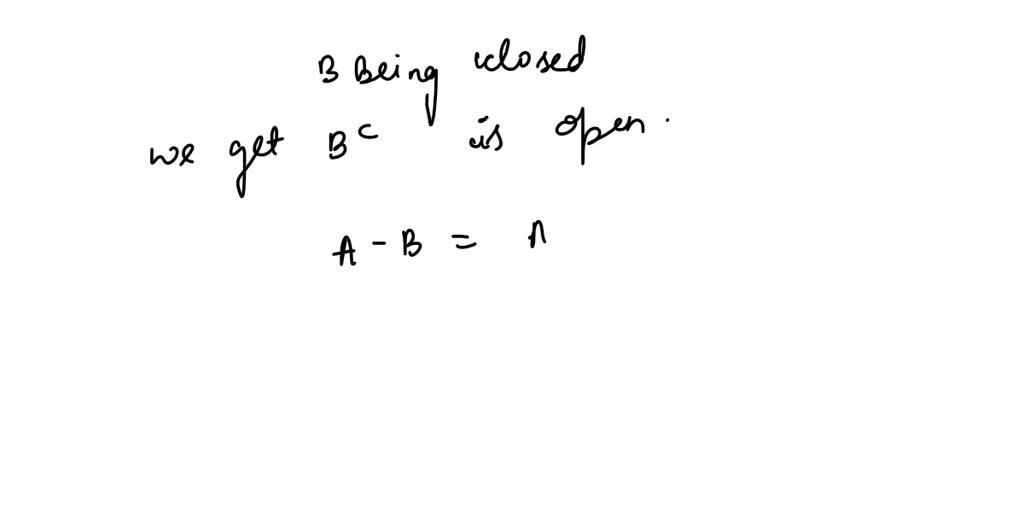 B Being closed
we get B^c is open.
A - B = A